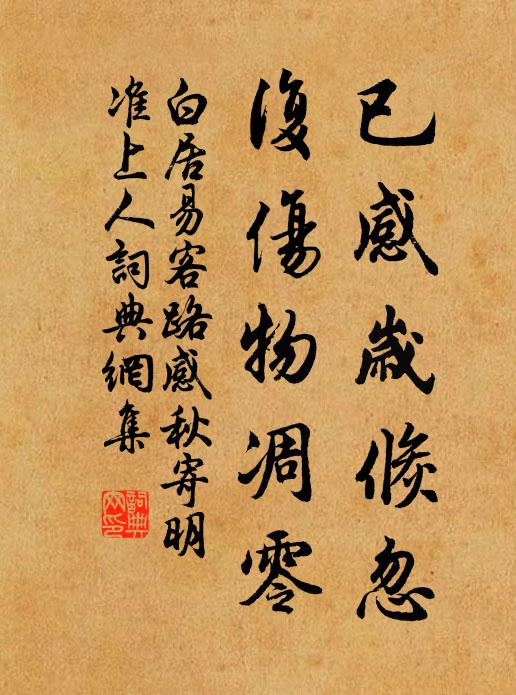 已感歲倐忽
復傷物凋零
白居易客路感秋寄明
准上人詞典網集
詞典
网印